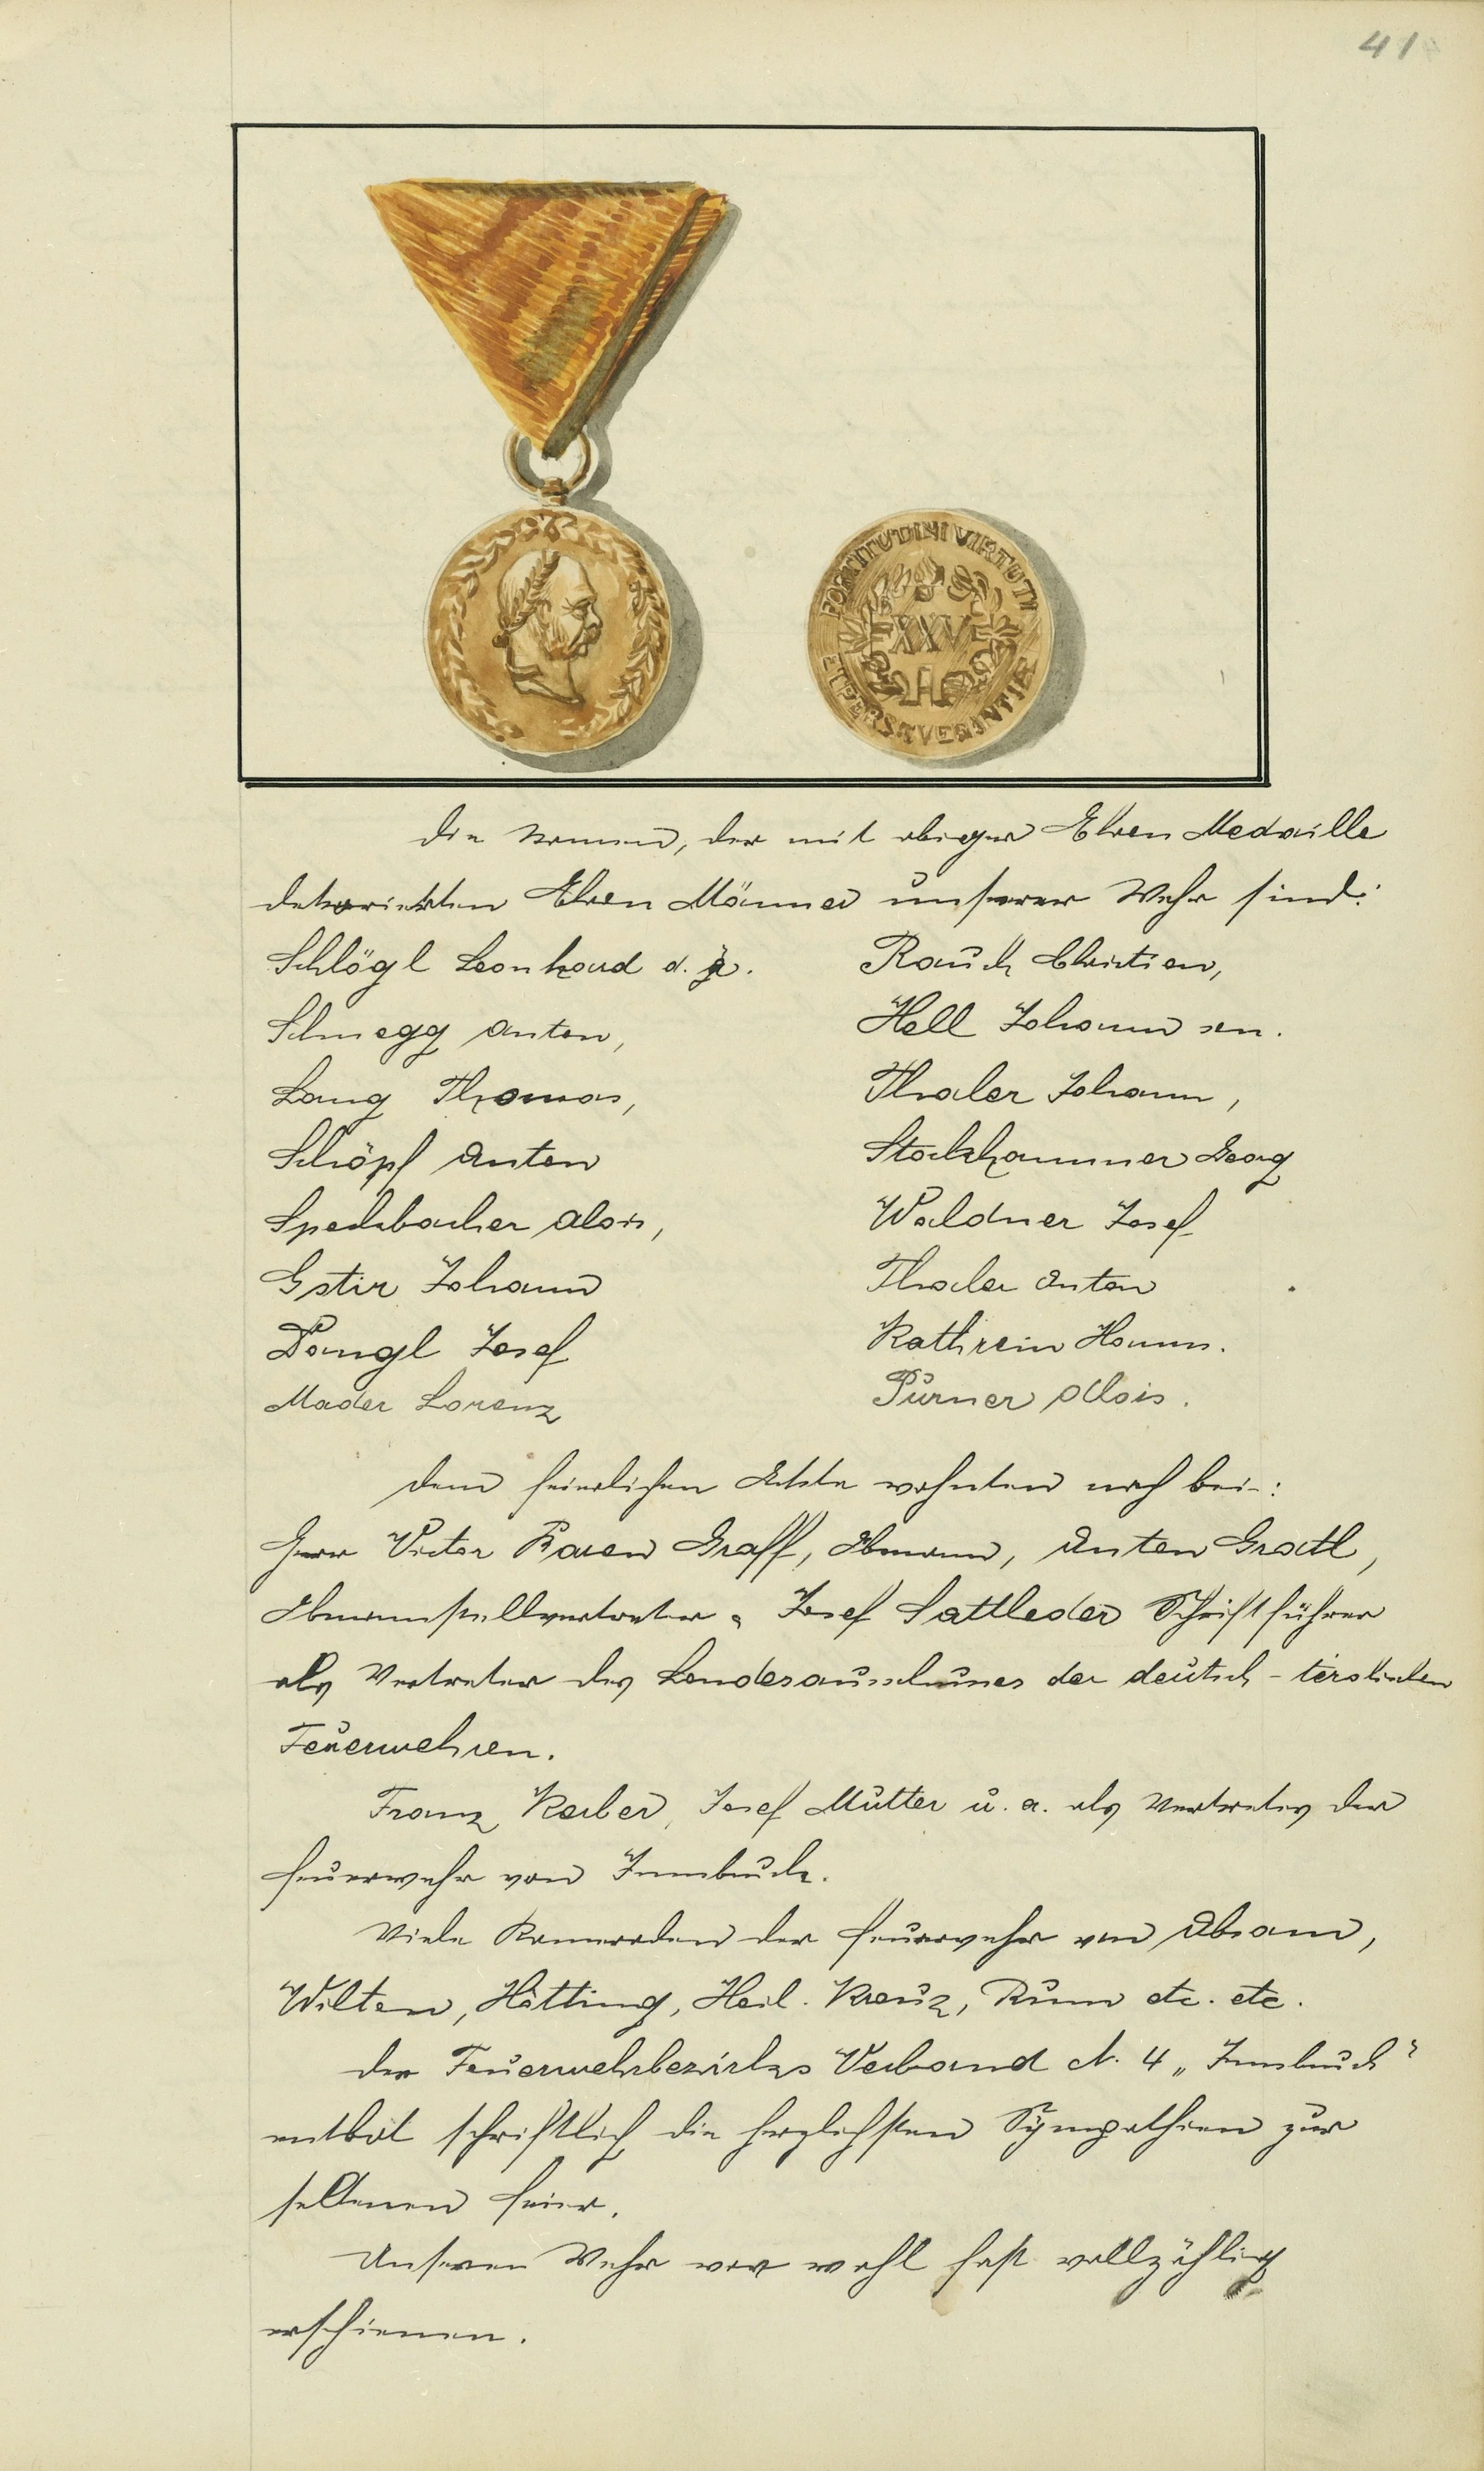 41
FORTITUDINI VIRTUTI
XXV
ET PERSEVERANTIÆ
Die Namen, der mit obiger Ehren Medaille
dekorierten Ehren Männer unserer Wehr sind:
Schlögl Leonhard d. ä.
Schmegg Anton,
Lang Thomas,
Schöpf Anton
Speckbacher Alois,
Gstir Johann
Pangl Josef
Mader Lorenz
Rauch Christian,
Hell Johann sen.
Thaler Johann,
Stockhammer Georg
Waldner Josef
Thaler Anton
Kathrein Hann.
Purner Alois.
Dem feierlichen Akte wohnten noch bei:
Herr Victor Baron Graff, Obmann, Anton Gratl,
Obmannstellvertreter, Josef Sattleder Schriftführer
als Vertreter des Landesausschusses der deutsch-tirolischen
Feuerwehren.
Franz Kerber, Josef Mutter u. a. als Vertreter der
Feuerwehr von Innsbruck.
Viele Kameraden der Feuerwehr von Absam,
Wilten, Hötting, Heil. Kreuz, Rum etc. etc.
Der Feuerwehrbezirks Verband N. 4 „Innsbruck"
entbot schriftlich die herzlichsten Sympathien zur
seltenen Feier.
Unseren Wehr war wohl fast vollzählig
erschienen.